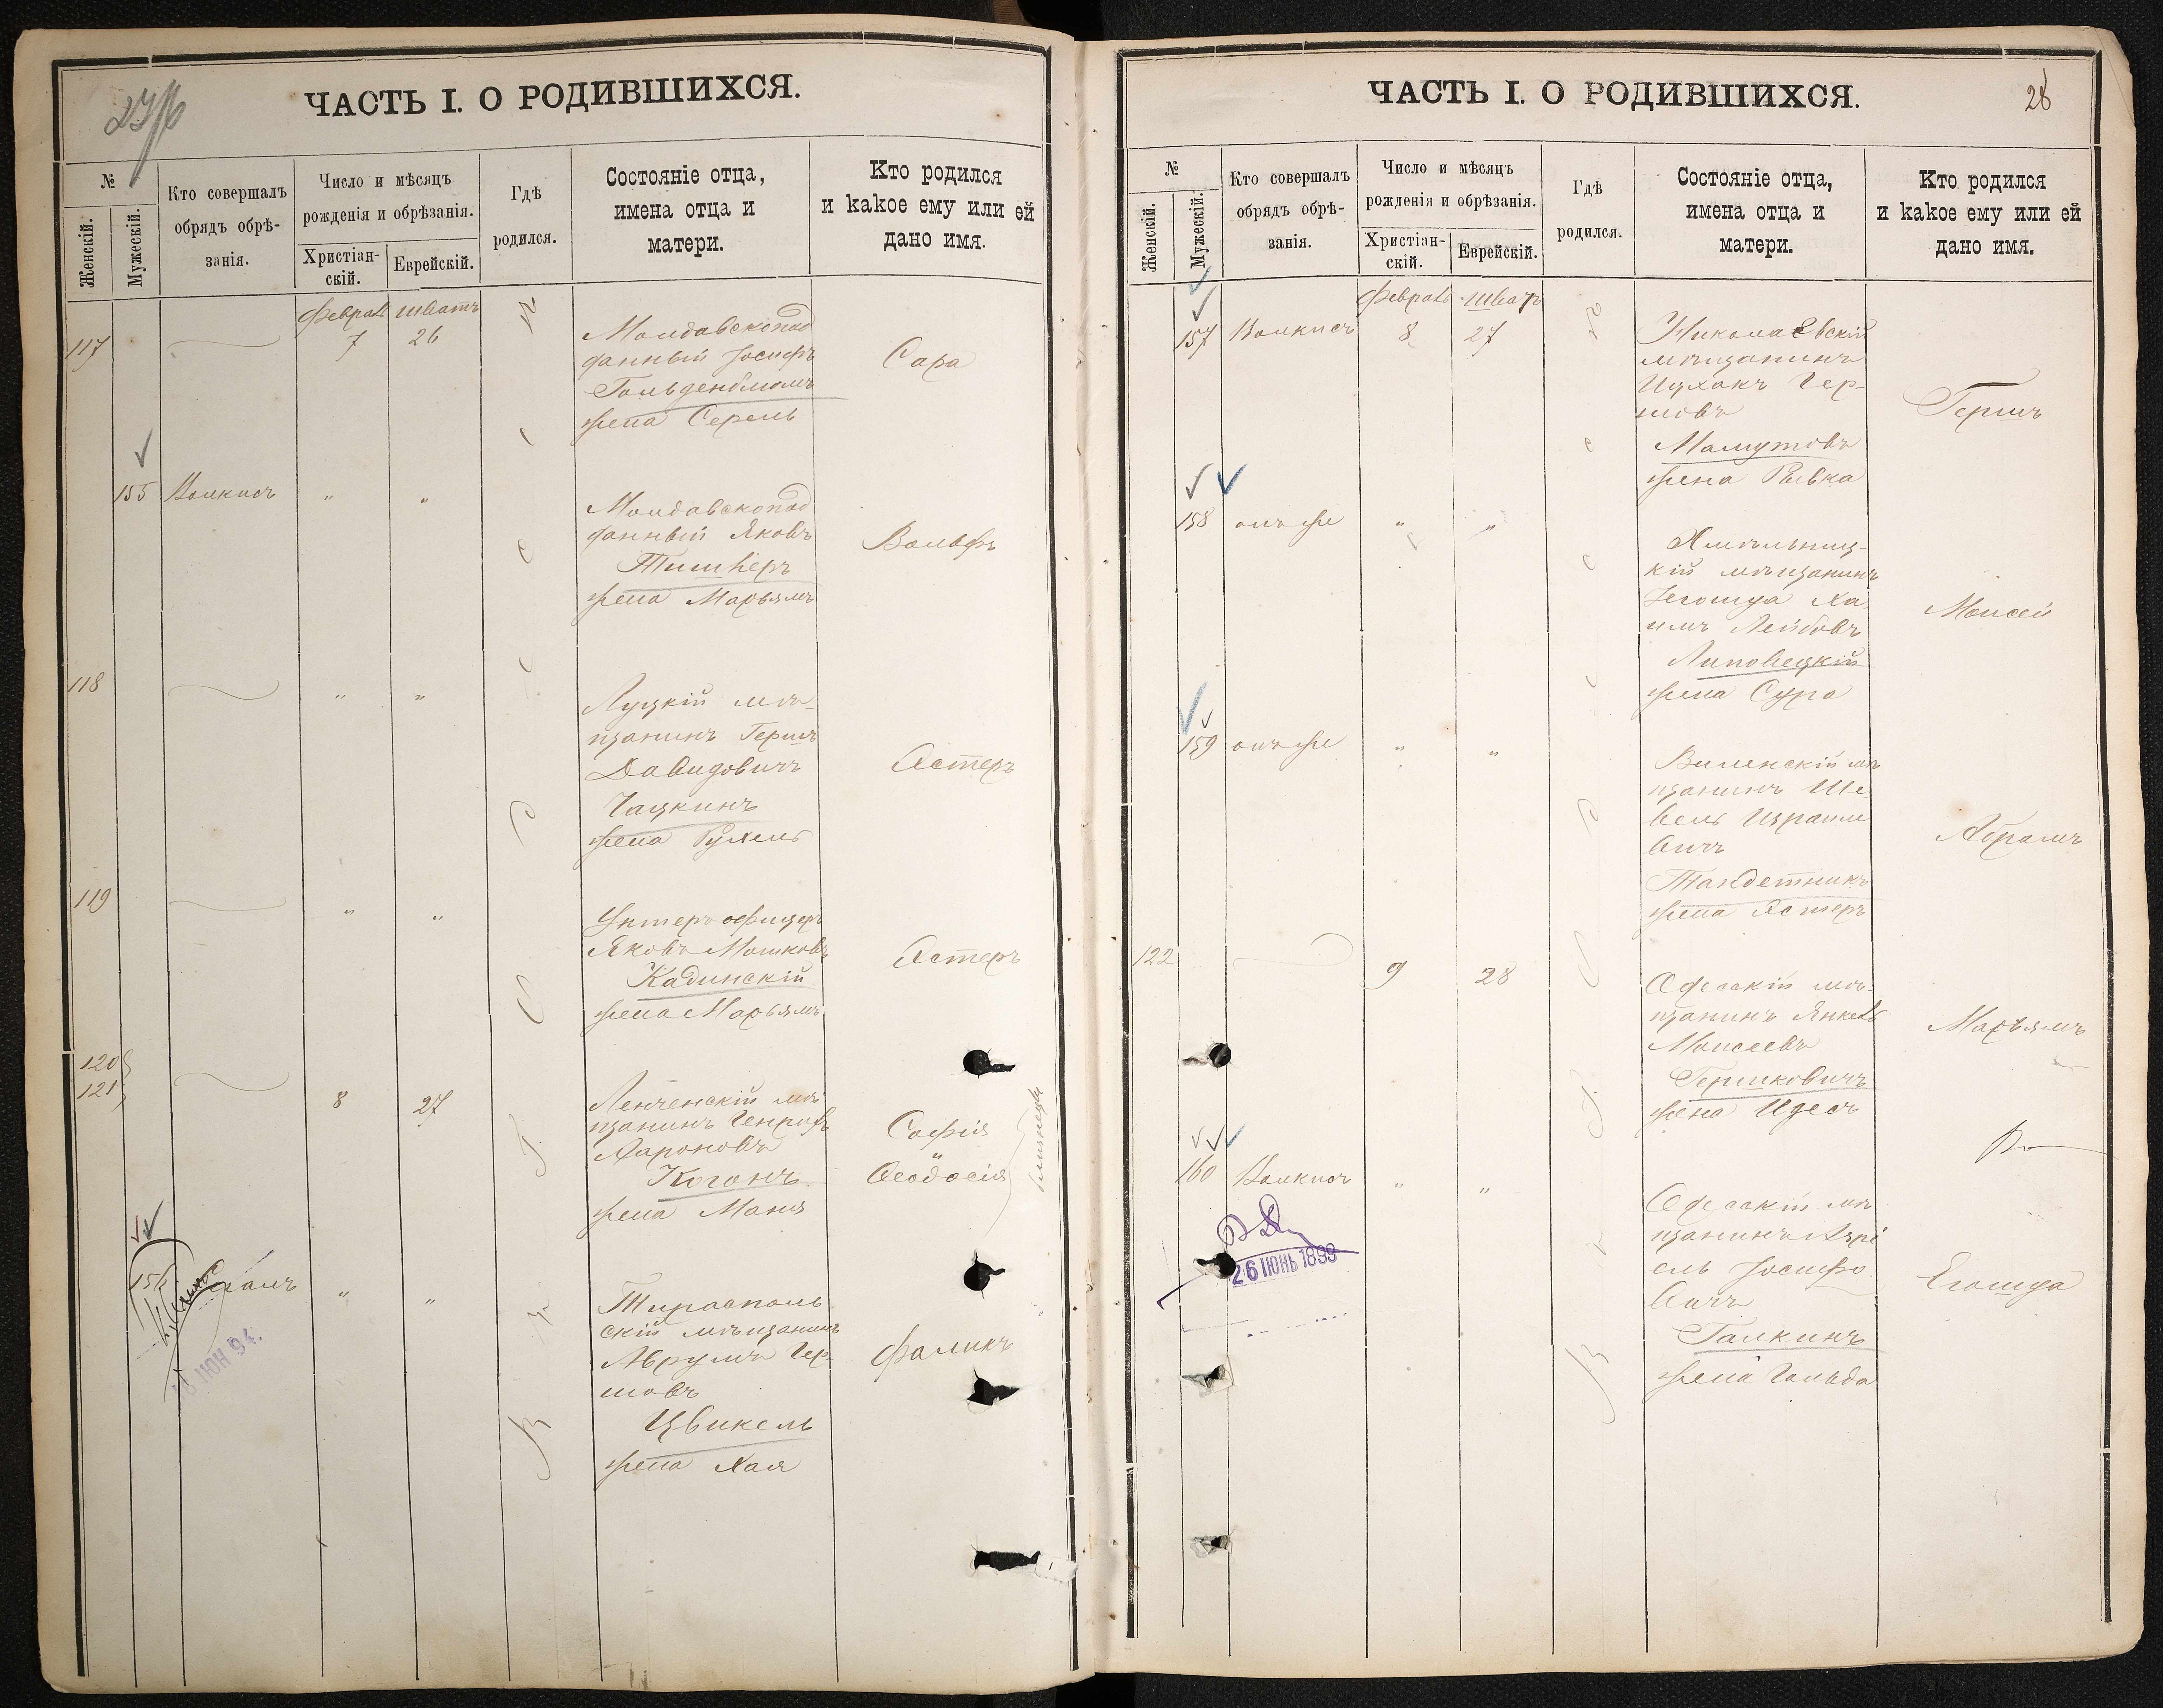 ЧАСТЬ I. О РОДИВШИХСЯ.
№
Женскій.
Мужескій.
Кто совершалъ
обрядъ обрѣ-
занія.
Число и мѣсяцъ
рожденія и обрѣзанія.
Христіан-
скій.
Еврейскій.
Гдѣ
родился.
Состояніе отца,
имена отца и
матери.
Кто родился
и какое ему или ей
дано имя.
Февраль Шватъ
117 7 26
Молдавскопод
данный Іосифъ
Гольденблюмъ
жена Серель
Сара
155 Волкисъ " "
Молдавскопод
данный Яковъ
жена Марьямъ
Вольфъ
118 " "
Луцкій мѣ-
щанинъ Гершъ
Давидовичъ
Чацкинъ
жена Рухель
Эстеръ
119 " "
Унтеръ-офицеръ
Яковъ Мошковъ
Кадинскій
жена Марьямъ
Эстеръ
120
121 8 27
щанинъ Генрихъ
Ароновъ
Коганъ
жена Маня
Софія
и
Ѳеодосія
близнецы
156 " "
Тирасполь
скій мѣщанинъ
Аврумъ Гер-
шовъ
Цвикель
жена Хая
Фаликъ
ІЮН 94.
ЧАСТЬ I. О РОДИВШИХСЯ.
28
№
Женскій.
Мужескій.
Кто совершалъ
обрядъ обрѣ-
занія.
Число и мѣсяцъ
рожденія и обрѣзанія.
Христіан-
скій.
Еврейскій.
Гдѣ
родился.
Состояніе отца,
имена отца и
матери.
Кто родился
и какое ему или ей
дано имя.
Февраль Шватъ
157 Волкисъ 8 27
Николаевскій
мѣщанинъ
Ицхокъ Гер-
шовъ
Мамутовъ
жена Ривка
Гершъ
158 онъ же " "
Хмѣльниц-
кій мѣщанинъ
Іегошуа Ха
имъ Лейбовъ
Липовецкій
жена Сура
Моисей
159 онъ же " "
Виленскій мѣ
щанинъ Ше
вель Израиле
вичъ
Тандетникъ
жена Эстеръ
Абрамъ
122 9 28
Одесскій мѣ-
щанинъ Янкель
Моисеевъ
Гершковичъ
жена Идесъ
Марьямъ
160 Волкисъ " "
Одесскій мѣ
щанинъ Азрі
ель Іосифо
вичъ
Галкинъ
жена Гольда
Егошуа
26 ІЮНЬ 1899